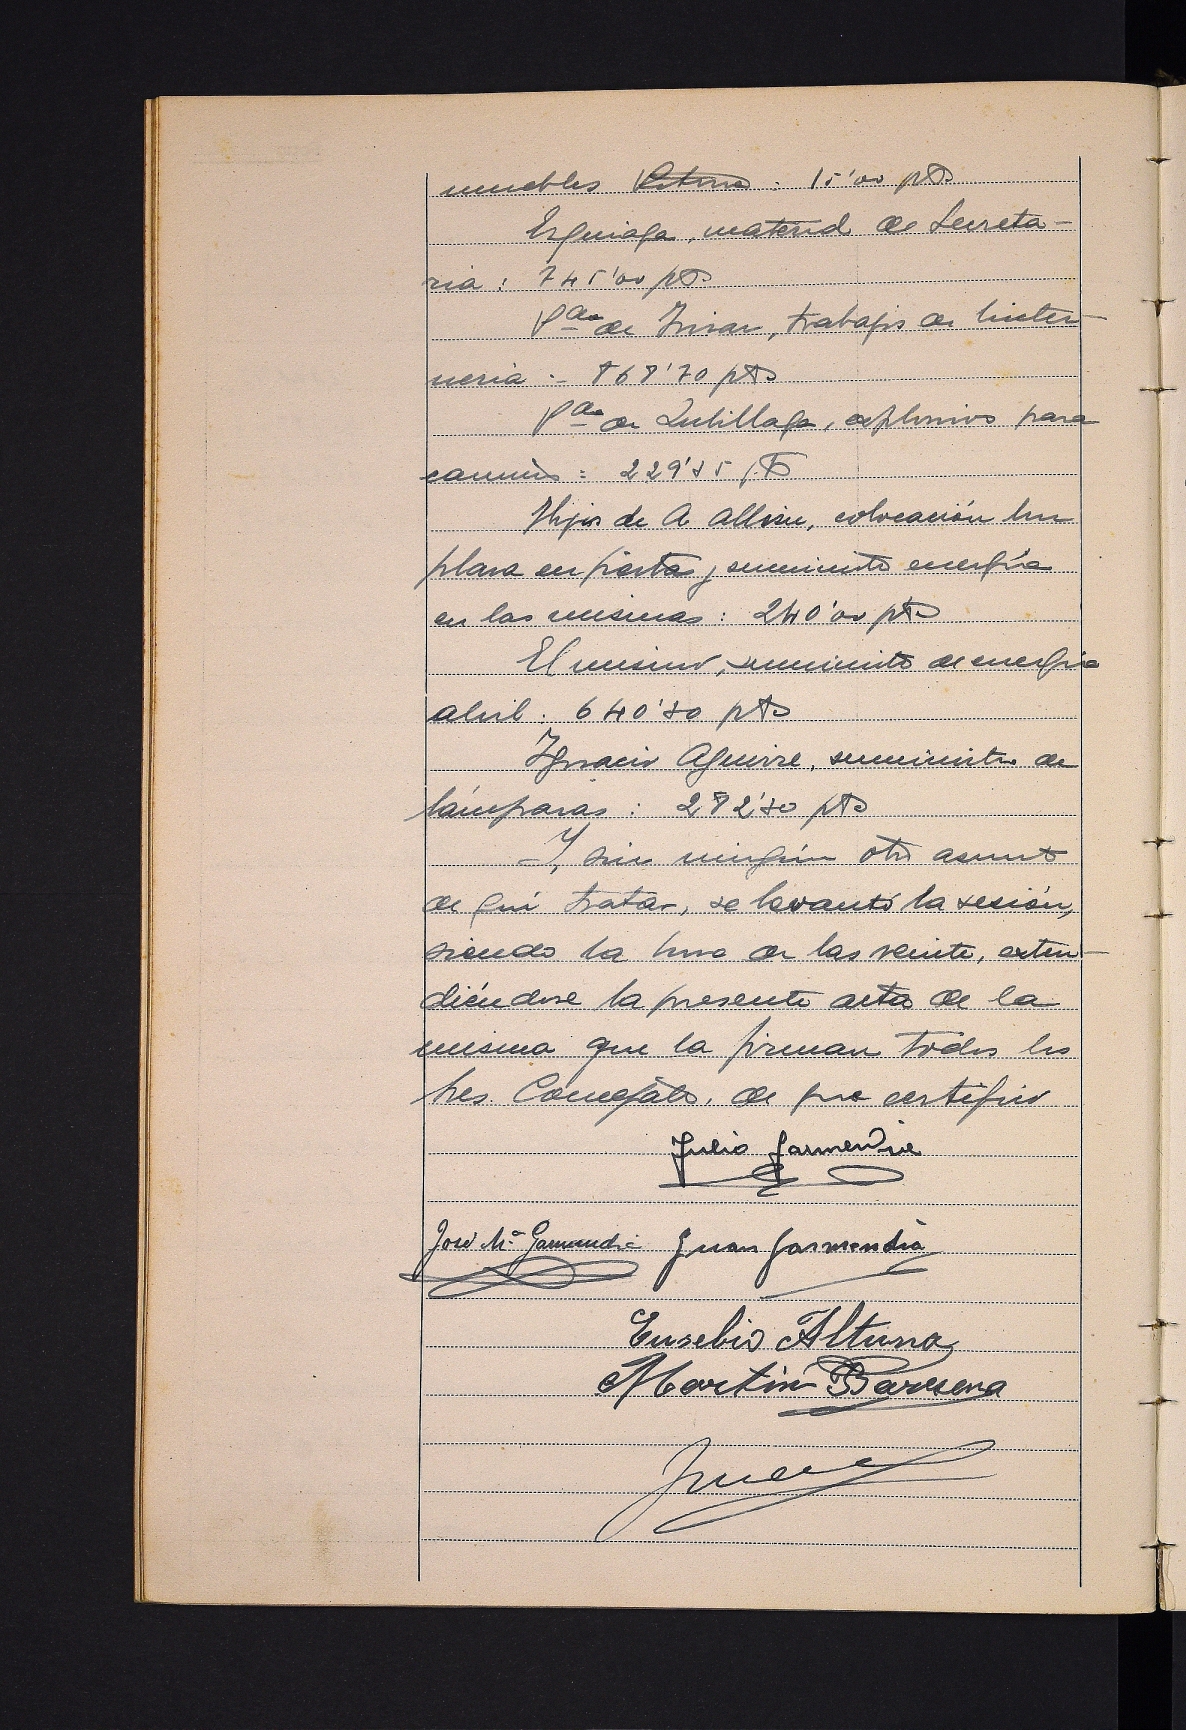 muebles : 15'00 pts
Esguiaga, material de Secreta-
ria : 745'00 pts
Vda de Irizar, trabajos de linter-
neria :- 868'70 pts
Vda de Lubillaga, explosivos para
caminos : 229'85 pts
Hijos de A Altuna, colocación luz
plaza en fiestas y suministro energía
en las mismas : 240'00 pts
El mismo, suministro de energía
abril : 640'80 pts
Ignacio Aguirre, suministro de
lámparas : 282'80 pts
Y, sin ningún otro asunto
de que tratar, se levantó la sesión,
siendo la hora de las veinte, exten-
diéndose la presente acta de la
misma que la firman todos los
Sres. Concejales, de que certifico
Julio Garmendia
José Mª Garmendia Juan Garmendia
Eusebio Altuna
Martin Barsena